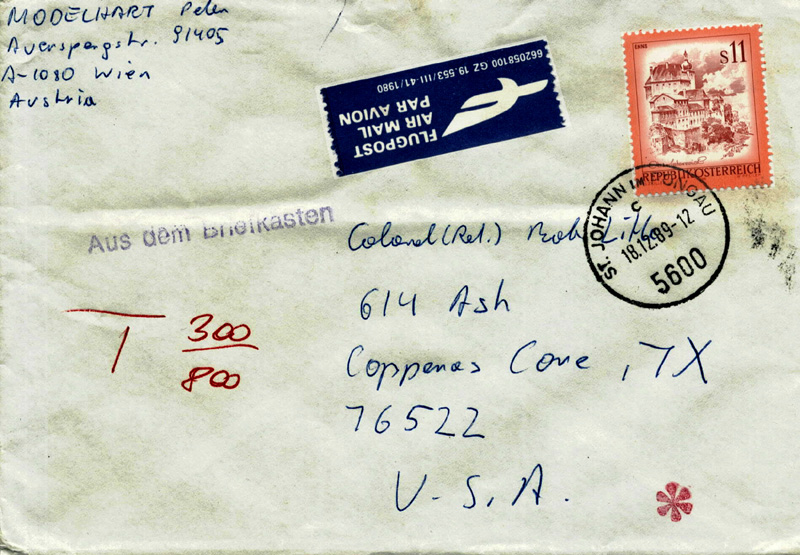 MODELHART Peter
Auerspergstr. 9/1405
A-1080 Wien
Austria
662058100 GZ 19.553/III-41/1980
FLUGPOST
AIR MAIL
PAR AVION
ENNS
S11
REPUBLIK ÖSTERREICH
ST. JOHANN IM PONGAU
c
18.12.89-12
5600
Aus dem Briefkasten
Colonel (Ret.) Bob
614 Ash
Copperas Cove, TX
76522
U.S.A.
T 300
800